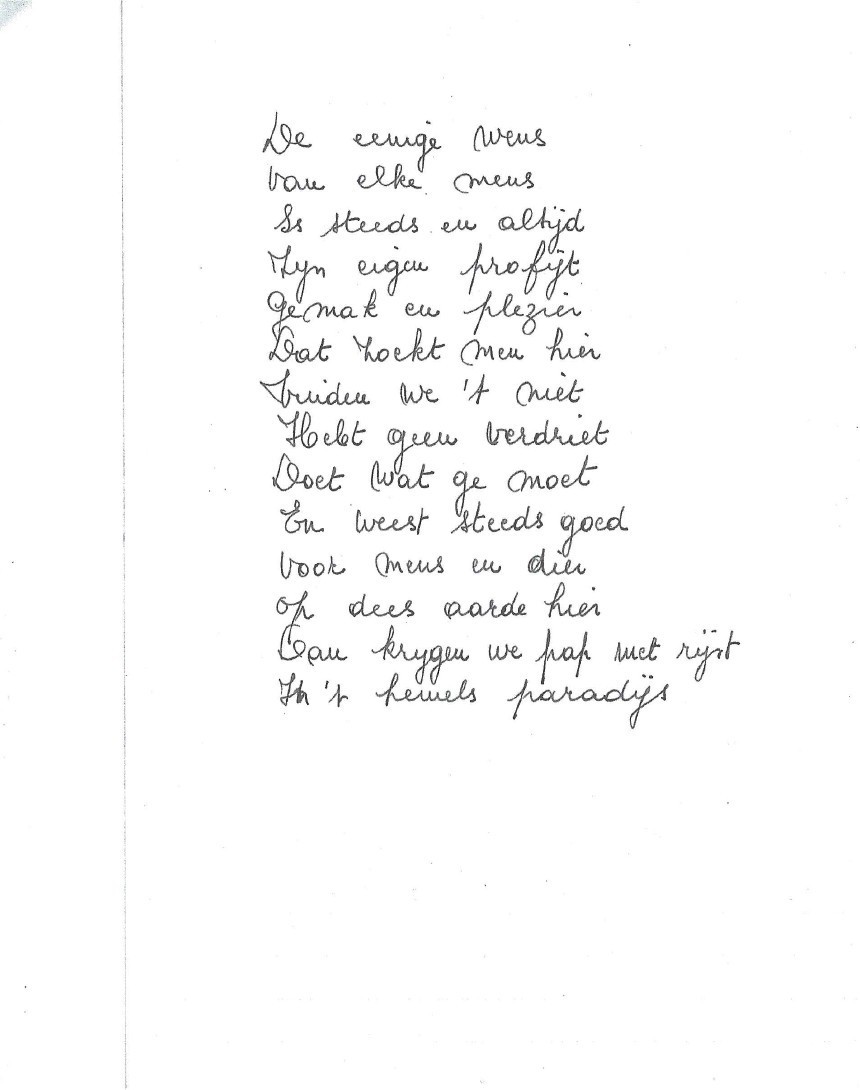 De eenige wens
van elke mens
Is steeds en altijd
Zyn eigen profijt
Gemak en plezier
Dat zoekt men hier
Vinden we 't niet
Hebt geen verdriet
Doet wat ge moet
En weest steeds goed
voor mens en dier
op dees aarde hier
Dan krygen we pap met rijst
In 't hemels paradijs